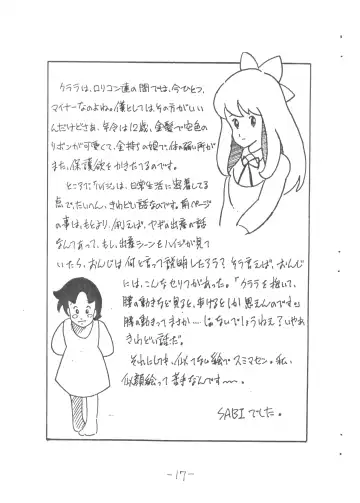 クララは、ロリコン達の間では、今ひとつ、
マイナーなのよね。僕としては その方がいい
んだけどさあ。年令は12歳、金髪で空色の
リボンが可愛くて、金持の娘で、体の弱い所が
また、保護欲をかきたてるのです。
ところで「ハイジ」は、日常生活に密着してる
点で、たいへん、きわどい話なのです。前ページ
の事は、もとより、例えば、ヤギの出産の話
なんてあって、もし、出産シーンをハイジが見て
いたら、おんじは 何と言って説明したろう? そう言えば、おんじ
には、こんなセリフがあった。「クララを抱いて、
腰の動きなど見ると、歩けるとしか思えんのです。」
腰の動きってまさか…はないでしょうねえ。いやあ
きわどい話だ。
それにしても、似てない絵でスミマセン。私、
似顔絵って苦手なんです〜〜。
SABIでした。
-17-